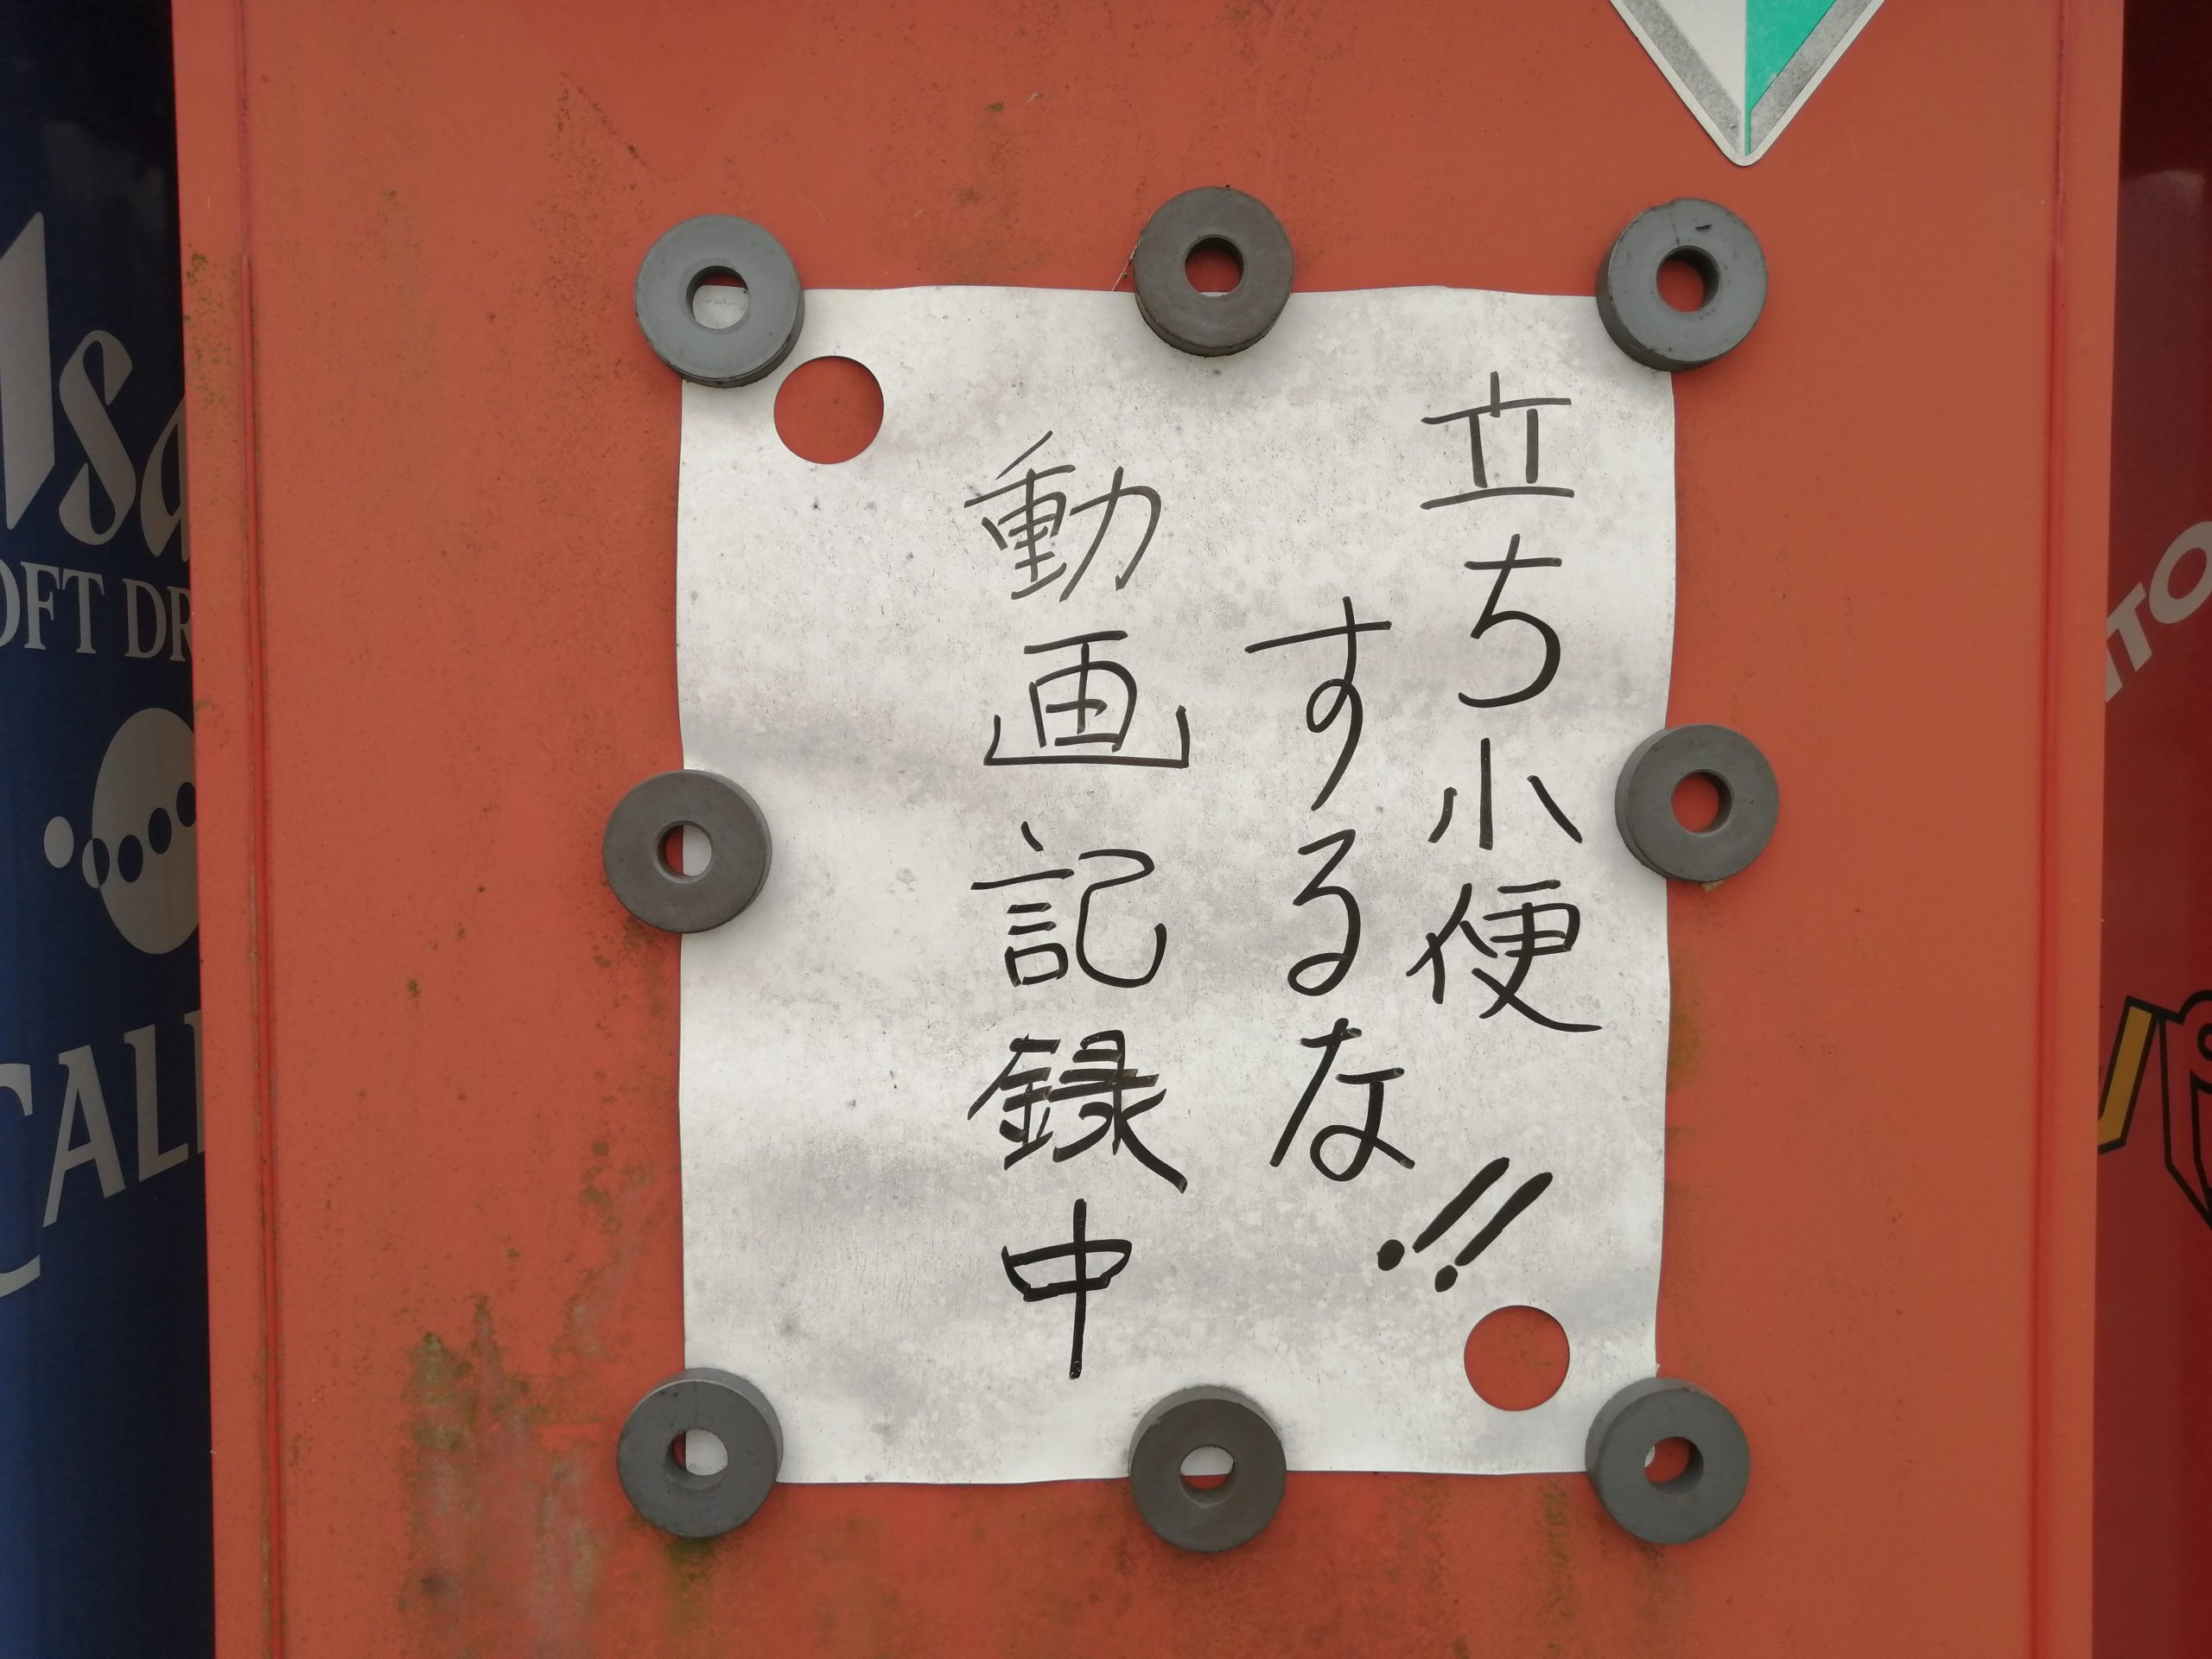 立ち小便
するな!!
動画記録中
OFT DR
CAL
NTO